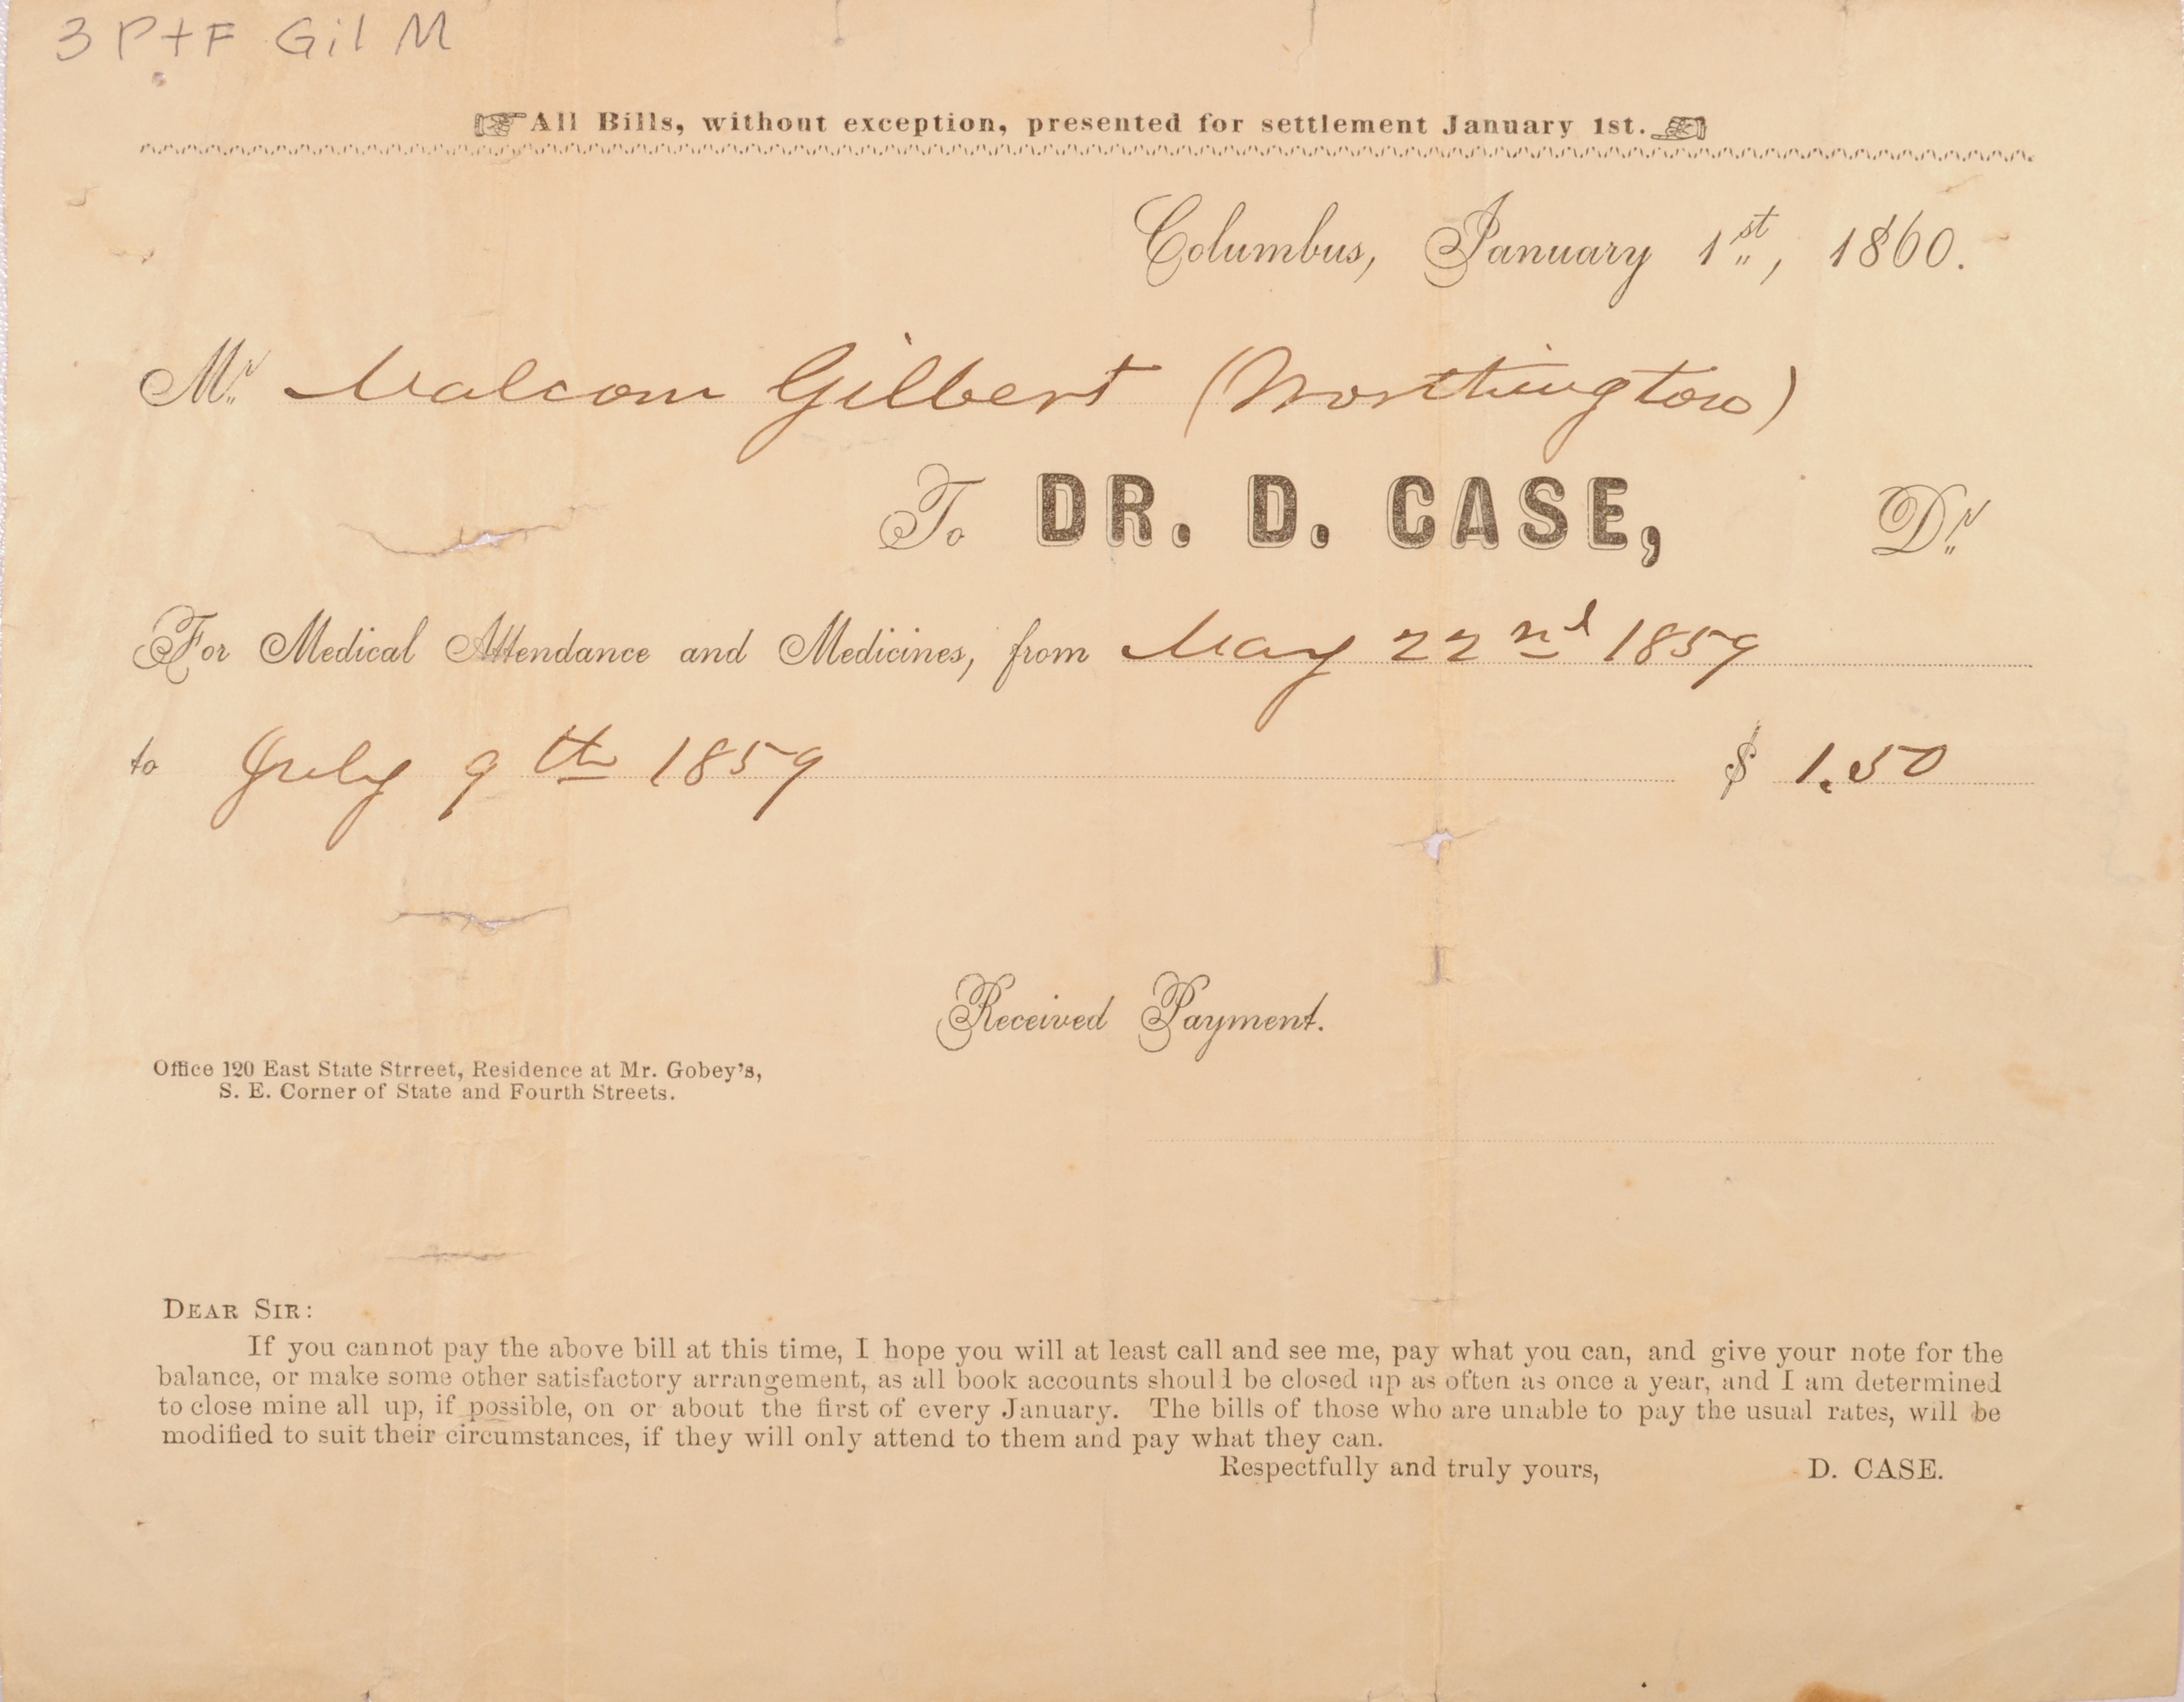 3 P+F Gil M
☞All Bills, without exception, presented for settlement January 1st.☜
Columbus, January 1st, 1860.
Mr. Malcom Gilbert (Worthington)
To DR. D. CASE, Dr.
For Medical Attendance and Medicines, from May 22nd 1859
to July 9th 1859 $ 1.50
Received Payment.
Office 120 East State Strreet, Residence at Mr. Gobey's,
S. E. Corner of State and Fourth Streets.
DEAR SIR:
If you cannot pay the above bill at this time, I hope you will at least call and see me, pay what you can, and give your note for the
balance, or make some other satisfactory arrangement, as all book accounts should be closed up as often as once a year, and I am determined
to close mine all up, if possible, on or about the first of every January. The bills of those who are unable to pay the usual rates, will be
modified to suit their circumstances, if they will only attend to them and pay what they can.
Respectfully and truly yours, D. CASE.